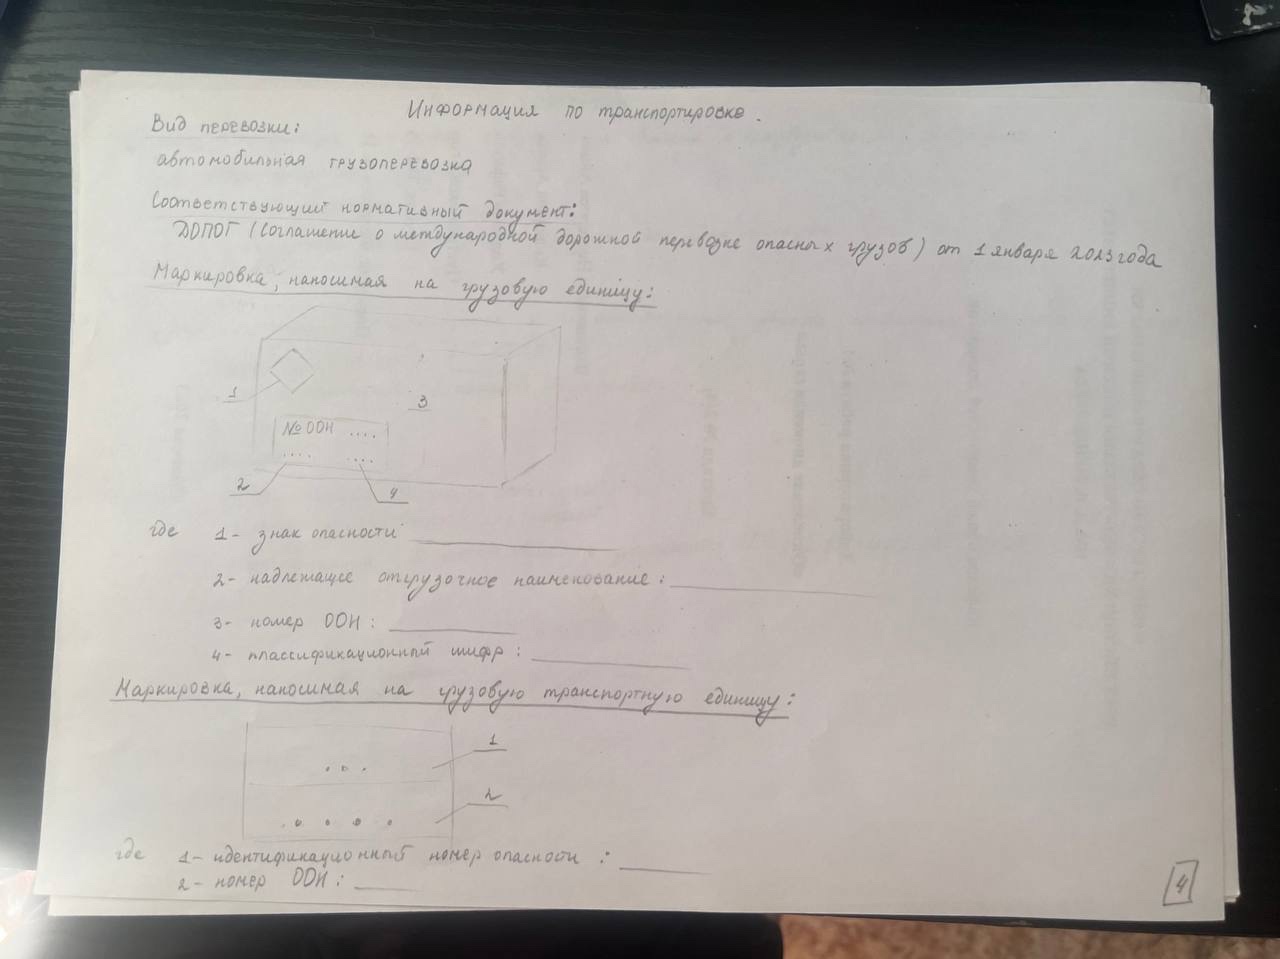 Информация по транспортировке.
Вид перевозки:
автомобильная грузоперевозка
Соответствующий нормативный документ:
ДОПОГ (Соглашение о международной дорожной перевозке опасных грузов) от 1 января 2023 года
Маркировка, наносимая на грузовую единицу:
1
3
№ ООН ....
.... ....
2 4
где 1- знак опасности
2- надлежащее отгрузочное наименование:
3- номер ООН:
4- классификационный шифр:
Маркировка, наносимая на грузовую транспортную единицу:
1
...
2
....
где 1- идентификационный номер опасности:
2- номер ООН:
4